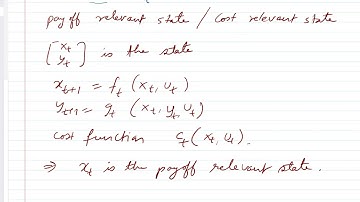 payoff relevant state / cost relevant state
[x_t y_t] is the state
x_{t+1} = f_t (x_t, u_t)
y_{t+1} = g_t (x_t, y_t, u_t)
cost function c_t (x_t, u_t).
⇒ x_t is the payoff relevant state.